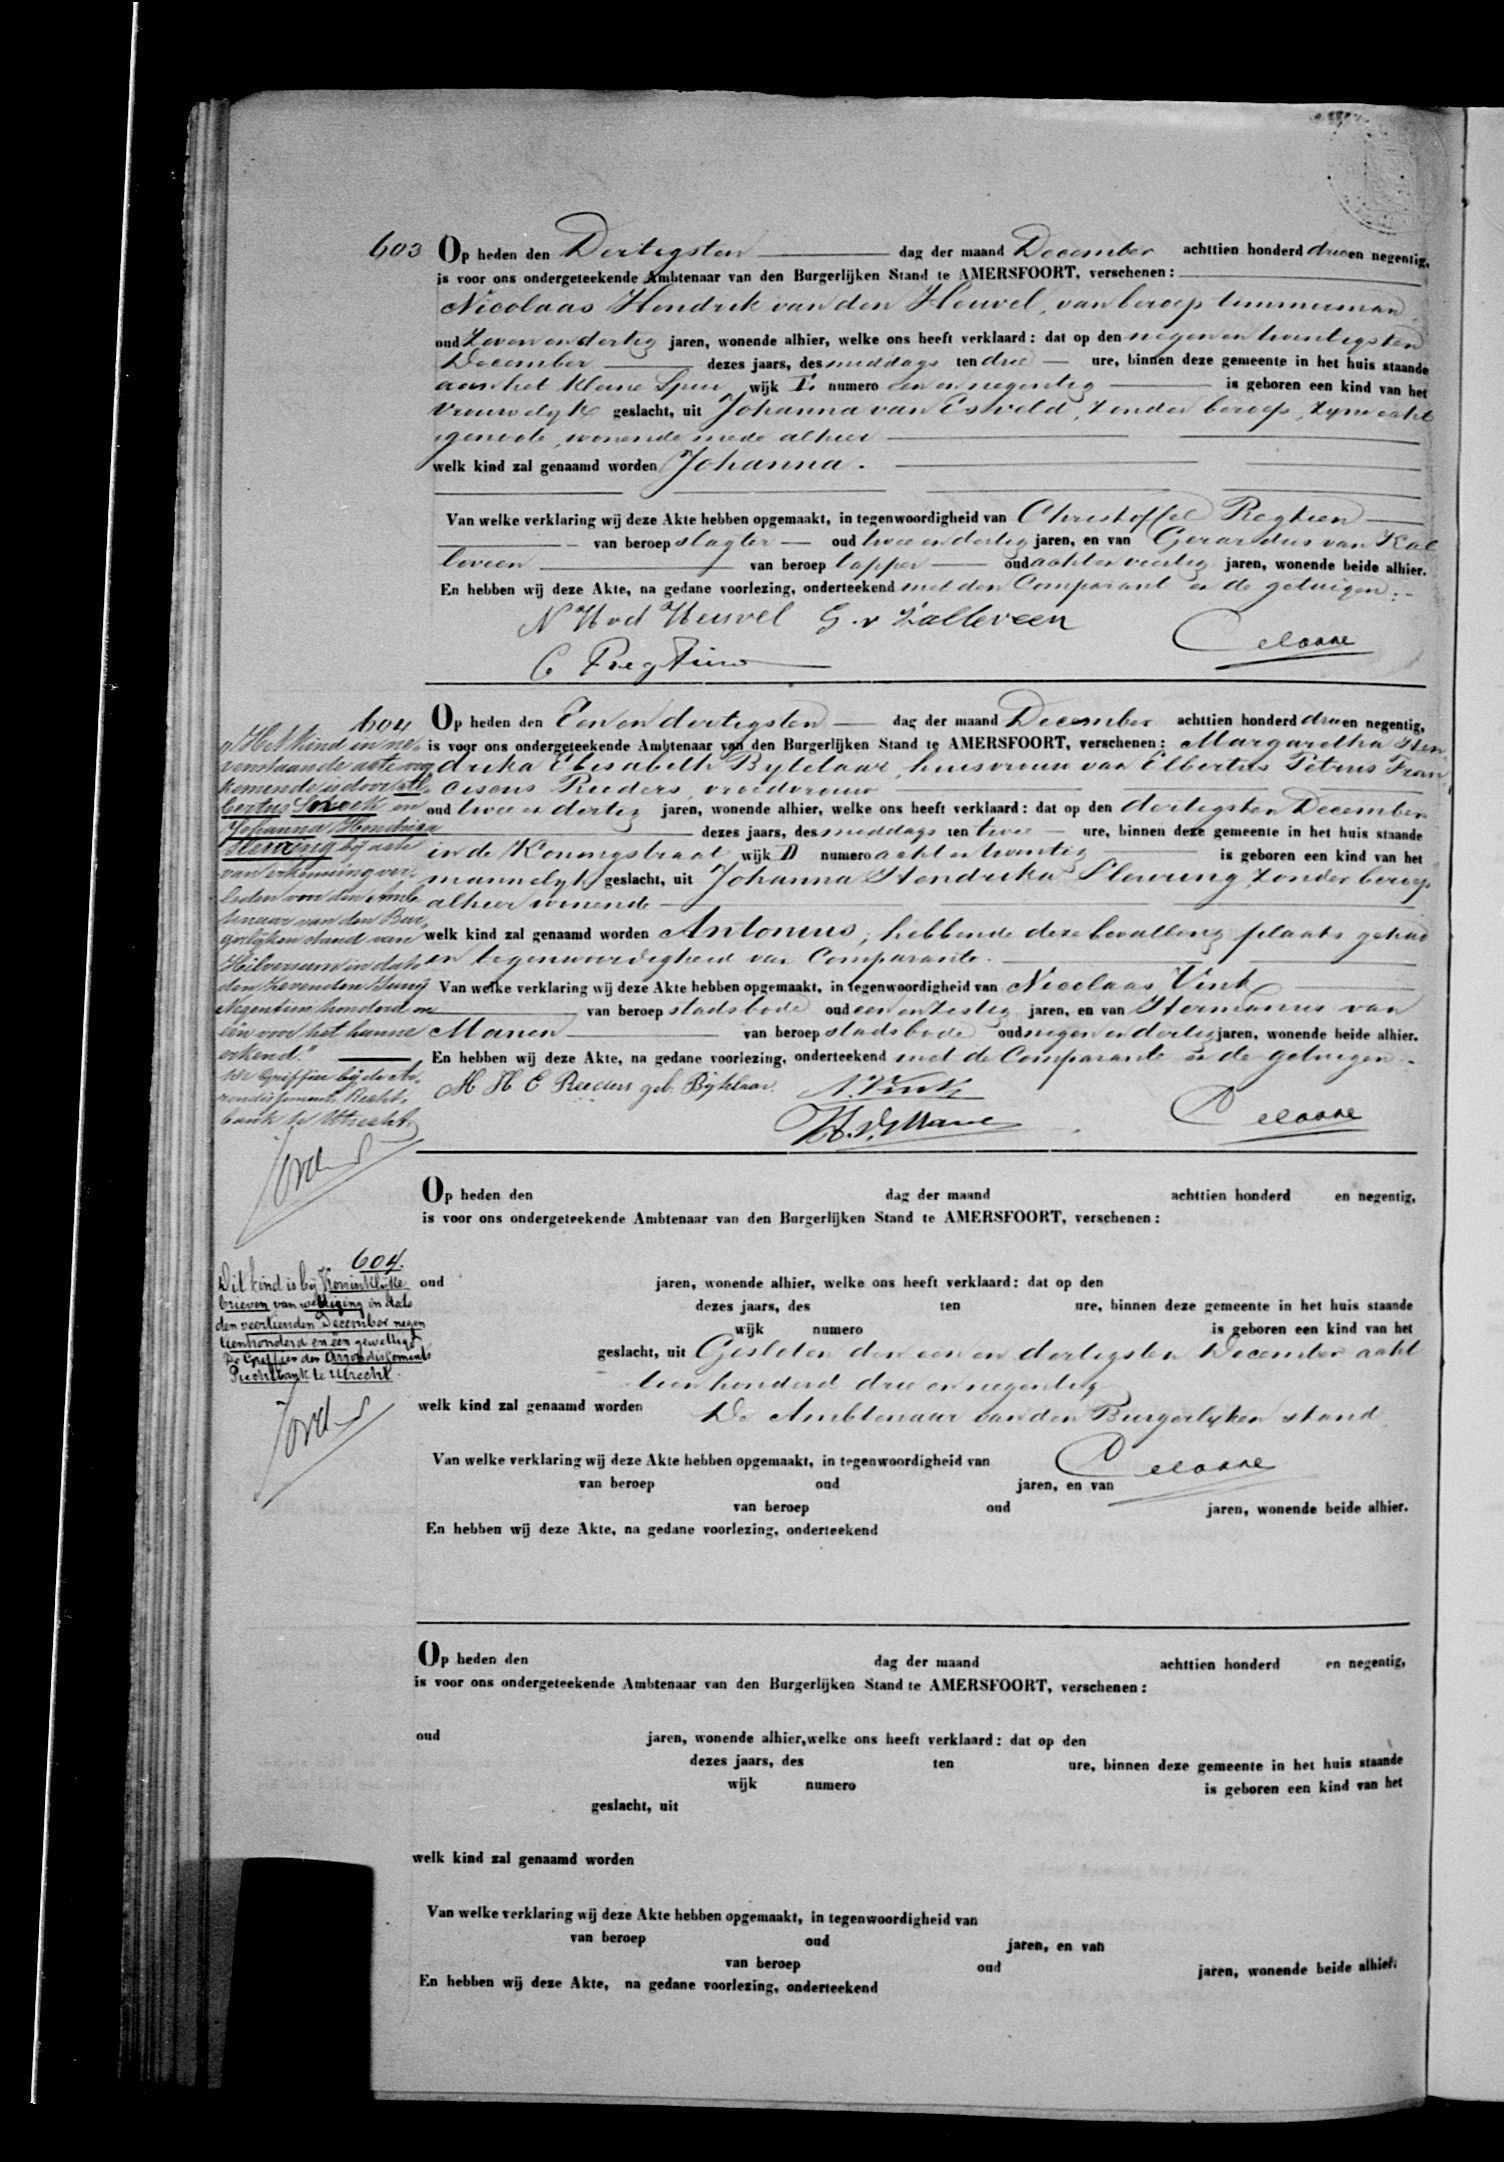 603 Op heden den Dertigsten dag der maand December achttien honderd drie en negentig,
is voor ons ondergeteekende Ambtenaar van den Burgerlijken Stand te AMERSFOORT, verschenen:
Nicolaas Hendrik van den Heuvel, van beroep timmerman
oud Zeven en dertig jaren, wonende alhier, welke ons heeft verklaard: dat op den negen en twintigsten
December dezes jaars, des middags ten drie ure, binnen deze gemeente in het huis staande
aan het kleine Spui wijk E. numero een en negentig is geboren een kind van het
vrouwelyk geslacht, uit Johanna van Esveld, zonder beroep, zyne echt
genoote, wonende mede alhier
welk kind zal genaamd worden Johanna.
Van welke verklaring wij deze Akte hebben opgemaakt, in tegenwoordigheid van Christoffel
van beroep slagter oud twee en dertig jaren, en van Gerardus van Kal
leveen van beroep tapper oud acht en veertig jaren, wonende beide alhier.
En hebben wij deze Akte, na gedane voorlezing, onderteekend met den Comparant en de getuigen:
N H vd Heuvel G. v Kalleveen
604 Op heden den Een en dertigsten dag der maand December achttien honderd drie en negentig,
is voor ons ondergeteekende Ambtenaar van den Burgerlijken Stand te AMERSFOORT, verschenen: Margaretha Hen
drika Elisabeth Bytelaar, huisvrouw van Elbertus Petrus Fran
ciscus Reeders, vroedvrouw
oud twee en dertig jaren, wonende alhier, welke ons heeft verklaard: dat op den dertigsten December
dezes jaars, des middags ten twee ure, binnen deze gemeente in het huis staande
in de Koningstraat wijk D numero acht en twintig is geboren een kind van het
mannelyk geslacht, uit Johanna Hendrika Slewing, zonder beroep
alhier wonende
welk kind zal genaamd worden Antonius, hebbende deze bevalling plaats gehad
in tegenwoordigheid van Comparante.
Van welke verklaring wij deze Akte hebben opgemaakt, in tegenwoordigheid van Nicolaas Vink
van beroep stadsbode oud een en zestig jaren, en van Hermanus van
Manen van beroep stadsbode oud negen en dertig jaren, wonende beide alhier.
En hebben wij deze Akte, na gedane voorlezing, onderteekend met de Comparante en de getuigen.
M H E Reeders geb. Bijtelaar. N. Vink
H. v. Mane
"Het kind in ne-
venstaande acte voor
komende is door
bertus en
Johanna Hendrika
Slewing bij acte
van erkenning ver-
leden voor den Amb
tenaar van den Bur-
gerlijken stand van
Hilversum in dato
den zevenden Juny
Negentien honderd en
één voor het hunne
erkend."
De Griffier bij de Ar-
rondissements Recht-
bank te Utrecht,
Op heden den dag der maand achttien honderd en negentig,
is voor ons ondergeteekende Ambtenaar van den Burgerlijken Stand te AMERSFOORT, verschenen:
oud jaren, wonende alhier, welke ons heeft verklaard: dat op den
dezes jaars, des ten ure, binnen deze gemeente in het huis staande
wijk numero is geboren een kind van het
geslacht, uit Gesloten den een en dertigsten December acht
tien honderd drie en negentig
welk kind zal genaamd worden De Ambtenaar van den Burgerlyken stand
Van welke verklaring wij deze Akte hebben opgemaakt, in tegenwoordigheid van
van beroep oud jaren, en van
van beroep oud jaren, wonende beide alhier.
En hebben wij deze Akte, na gedane voorlezing, onderteekend
604.
Dit kind is bij Koninklijke
brieven van wettiging in dato
den veertienden December negen
tienhonderd en één gewettigd
De Griffier der Arrondissements
Rechtbank te Utrecht.
Op heden den dag der maand achttien honderd en negentig,
is voor ons ondergeteekende Ambtenaar van den Burgerlijken Stand te AMERSFOORT, verschenen:
oud jaren, wonende alhier, welke ons heeft verklaard: dat op den
dezes jaars, des ten ure, binnen deze gemeente in het huis staande
wijk numero is geboren een kind van het
geslacht, uit
welk kind zal genaamd worden
Van welke verklaring wij deze Akte hebben opgemaakt, in tegenwoordigheid van
van beroep oud jaren, en van
van beroep oud jaren, wonende beide alhier.
En hebben wij deze Akte, na gedane voorlezing, onderteekend